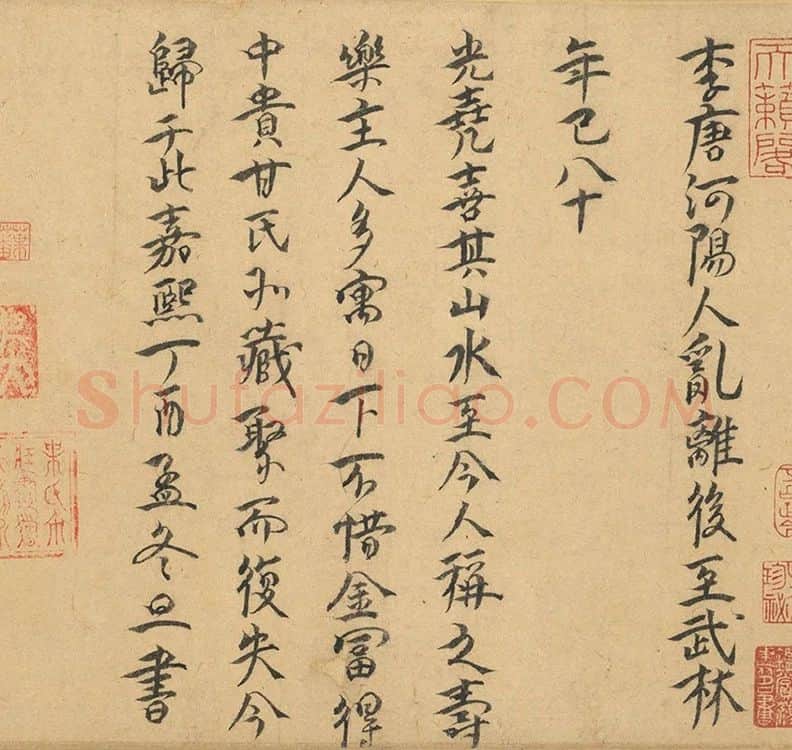 李唐河陽人亂離後至武林
年已八十
光堯喜其山水至今人稱之壽
樂主人多寓日下不惜金冨得
中貴甘氏所藏聚而復失今
歸于此嘉熙丁酉孟冬旦書
天籟閣
Shufaziliao.COM